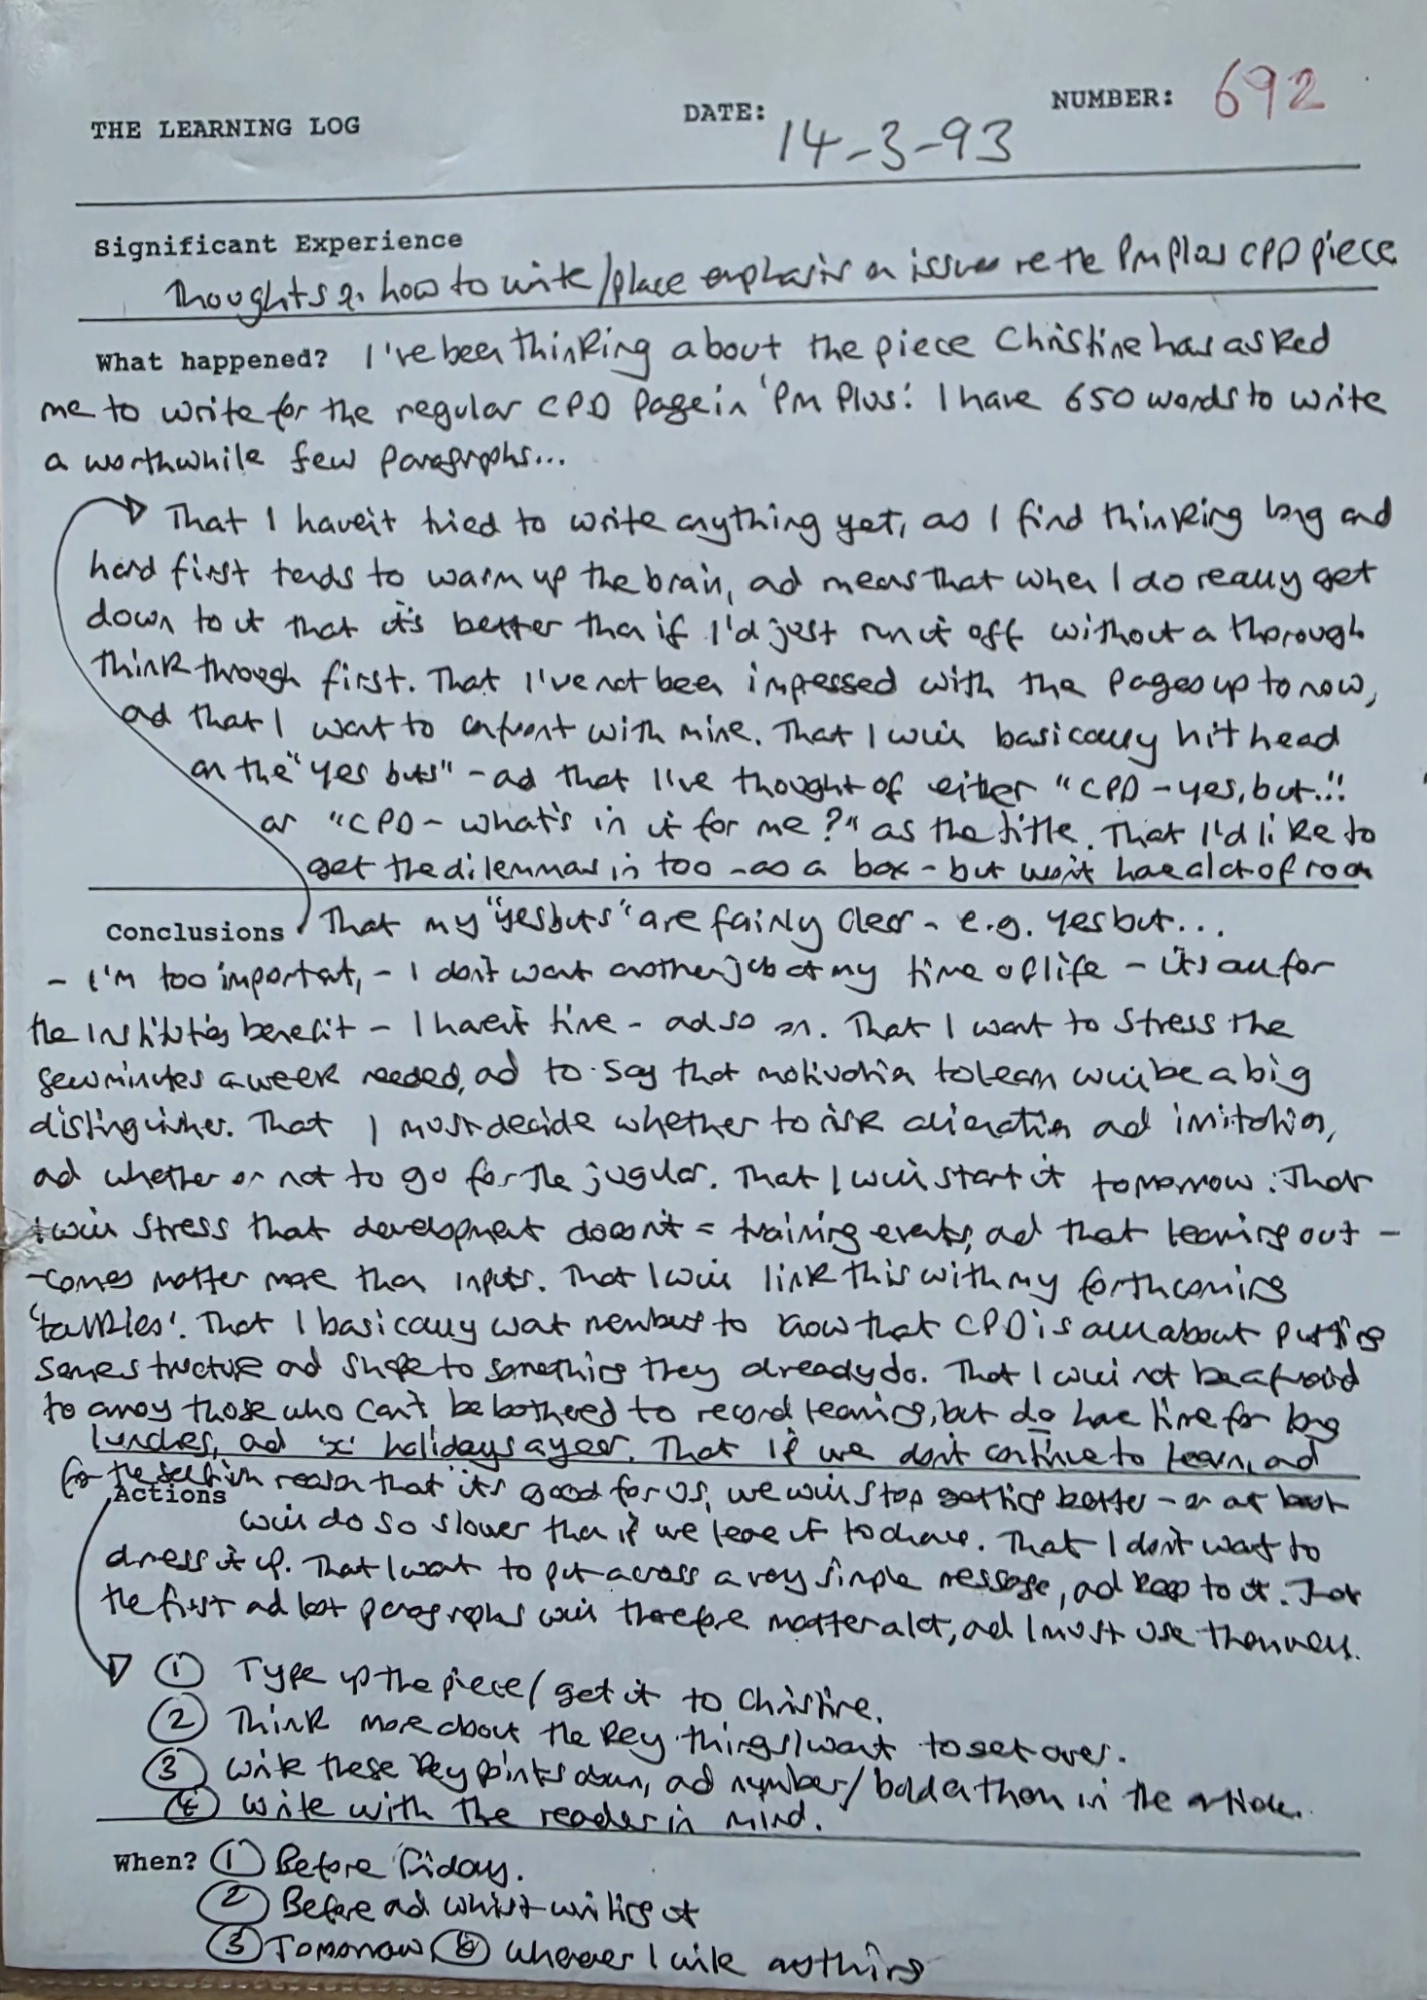 THE LEARNING LOG DATE: 14-3-93 NUMBER: 692
Significant Experience
Thoughts on how to write/place emphasis on issues re the PM Plus CPD piece
What happened? I've been thinking about the piece Christine has asked
me to write for the regular CPD page in 'PM Plus'. I have 650 words to write
a worthwhile few paragraphs...
That I haven't tried to write anything yet, as I find thinking long and
hard first tends to warm up the brain, and means that when I do really get
down to it that it's better than if I'd just run it off without a thorough
think through first. That I've not been impressed with the pages up to now,
and that I want to confront with mine. That I will basically hit head
on the "yes buts" - and that I've thought of either "CPD - yes, but.."
or "CPD - what's in it for me?" as the title. That I'd like to
get the dilemmas in too - as a box - but won't have a lot of room
Conclusions That my "yes buts" are fairly clear - e.g. yes but...
- I'm too important, - I don't want another job at my time of life - it's all for
the Institute's benefit - I haven't time - and so on. That I want to stress the
few minutes a week needed, and to say that motivation to learn will be a big
distinguisher. That I must decide whether to risk alienation and irritation,
and whether or not to go for the jugular. That I will start it tomorrow. That
I will stress that development doesn't = training events, and that learning out-
-comes matter more than inputs. That I will link this with my forthcoming
'talkies'. That I basically want members to know that CPD is all about putting
some structure and shape to something they already do. That I will not be afraid
to annoy those who can't be bothered to record learning, but do have time for long
lunches, and 'x' holidays a year. That if we don't continue to learn, and
for the selfish reason that it's good for us, we will stop getting better - or at least
Actions
will do so slower than if we leave it to chance. That I don't want to
dress it up. That I want to put across a very simple message, and keep to it. That
the first and last paragraphs will therefore matter a lot, and I must use them well.
① Type up the piece/get it to Christine.
② Think more about the key things I want to get over.
③ Write these key points down, and number/bold them in the article.
④ Write with the reader in mind.
When? ① Before Friday.
② Before and whilst writing it
③ Tomorrow ④ Whenever I write anything